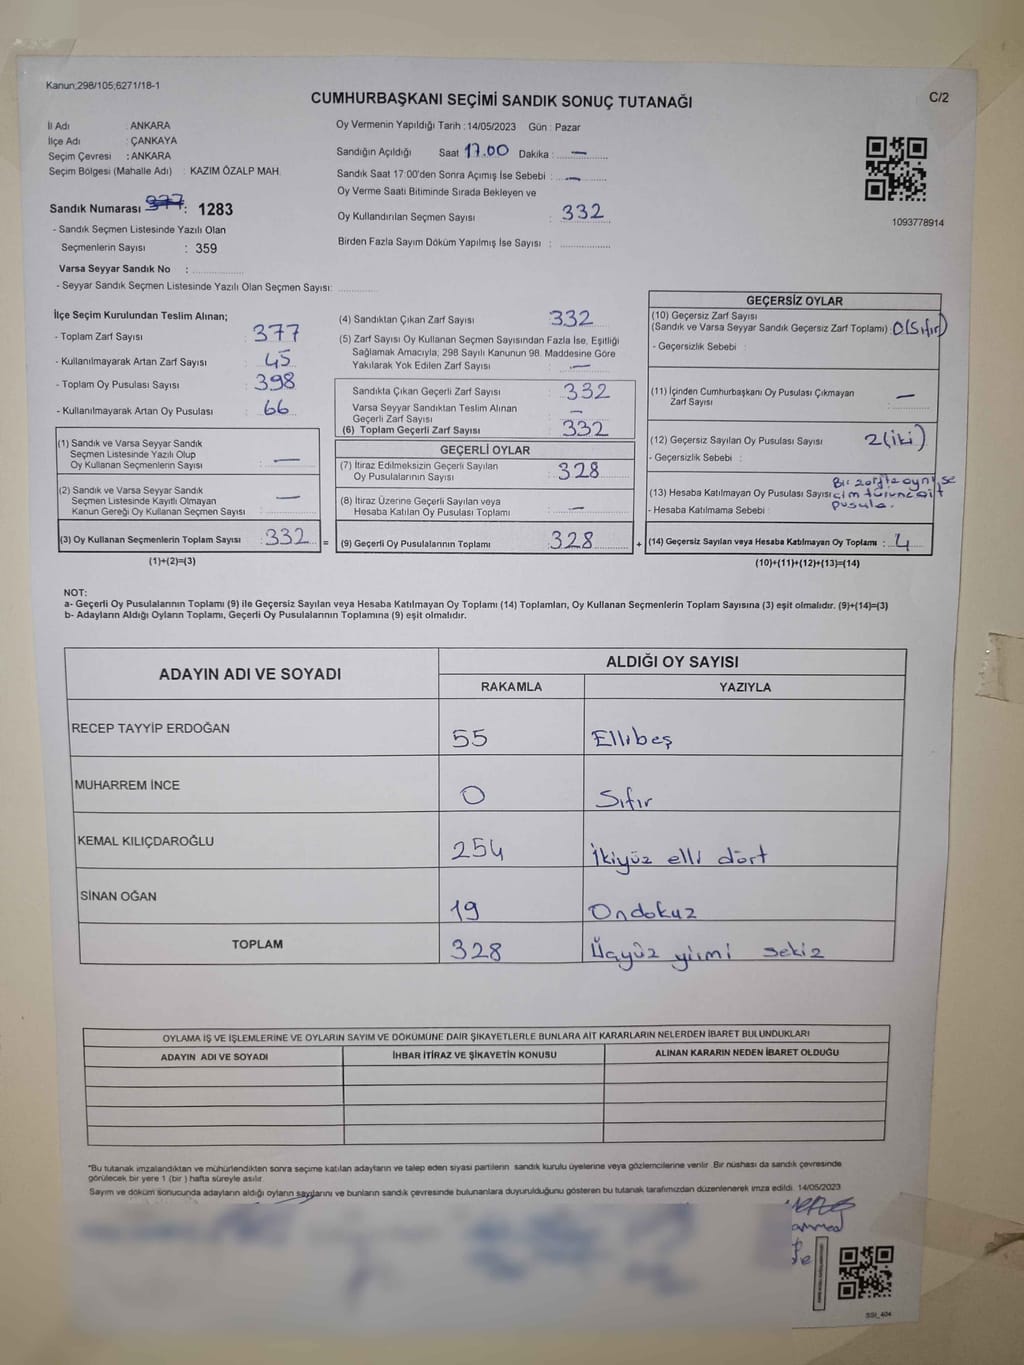 Kanun;298/105;6271/18-1
CUMHURBAŞKANI SEÇİMİ SANDIK SONUÇ TUTANAĞI
C/2
İl Adı : ANKARA
İlçe Adı : ÇANKAYA
Seçim Çevresi : ANKARA
Seçim Bölgesi (Mahalle Adı) : KAZIM ÖZALP MAH.
Sandık Numarası 377: 1283
- Sandık Seçmen Listesinde Yazılı Olan
Seçmenlerin Sayısı : 359
Varsa Seyyar Sandık No :
- Seyyar Sandık Seçmen Listesinde Yazılı Olan Seçmen Sayısı:
Oy Vermenin Yapıldığı Tarih :14/05/2023 Gün : Pazar
Sandığın Açıldığı Saat 17.00 Dakika : —
Sandık Saat 17:00'den Sonra Açımış İse Sebebi : —
Oy Verme Saati Bitiminde Sırada Bekleyen ve
Oy Kullandırılan Seçmen Sayısı : 332
Birden Fazla Sayım Döküm Yapılmış İse Sayısı :
1093778914
İlçe Seçim Kurulundan Teslim Alınan;
- Toplam Zarf Sayısı : 377
- Kullanılmayarak Artan Zarf Sayısı : 45
- Toplam Oy Pusulası Sayısı : 398
- Kullanılmayarak Artan Oy Pusulası : 66
(1) Sandık ve Varsa Seyyar Sandık
Seçmen Listesinde Yazılı Olup
Oy Kullanan Seçmenlerin Sayısı : —
(2) Sandık ve Varsa Seyyar Sandık
Seçmen Listesinde Kayıtlı Olmayan
Kanun Gereği Oy Kullanan Seçmen Sayısı : —
(3) Oy Kullanan Seçmenlerin Toplam Sayısı : 332
(1)+(2)=(3)
(4) Sandıktan Çıkan Zarf Sayısı : 332
(5) Zarf Sayısı Oy Kullanan Seçmen Sayısından Fazla İse, Eşitliği
Sağlamak Amacıyla; 298 Sayılı Kanunun 98. Maddesine Göre
Yakılarak Yok Edilen Zarf Sayısı : —
Sandıkta Çıkan Geçerli Zarf Sayısı : 332
Varsa Seyyar Sandıktan Teslim Alınan
Geçerli Zarf Sayısı : —
(6) Toplam Geçerli Zarf Sayısı : 332
GEÇERLİ OYLAR
(7) İtiraz Edilmeksizin Geçerli Sayılan
Oy Pusulalarının Sayısı : 328
(8) İtiraz Üzerine Geçerli Sayılan veya
Hesaba Katılan Oy Pusulası Toplamı : —
= (9) Geçerli Oy Pusulalarının Toplamı : 328
GEÇERSİZ OYLAR
(10) Geçersiz Zarf Sayısı
(Sandık ve Varsa Seyyar Sandık Geçersiz Zarf Toplamı) : 0(Sıfır)
- Geçersizlik Sebebi :
(11) İçinden Cumhurbaşkanı Oy Pusulası Çıkmayan
Zarf Sayısı : —
(12) Geçersiz Sayılan Oy Pusulası Sayısı : 2(iki)
- Geçersizlik Sebebi :
(13) Hesaba Katılmayan Oy Pusulası Sayısı
- Hesaba Katılmama Sebebi :
Bir zarfta
pusula.
+ (14) Geçersiz Sayılan veya Hesaba Katılmayan Oy Toplamı : 4
(10)+(11)+(12)+(13)=(14)
NOT:
a- Geçerli Oy Pusulalarının Toplamı (9) ile Geçersiz Sayılan veya Hesaba Katılmayan Oy Toplamı (14) Toplamları, Oy Kullanan Seçmenlerin Toplam Sayısına (3) eşit olmalıdır. (9)+(14)=(3)
b- Adayların Aldığı Oyların Toplamı, Geçerli Oy Pusulalarının Toplamına (9) eşit olmalıdır.
ADAYIN ADI VE SOYADI
ALDIĞI OY SAYISI
RAKAMLA YAZIYLA
RECEP TAYYİP ERDOĞAN 55 Ellibeş
MUHARREM İNCE 0 Sıfır
KEMAL KILIÇDAROĞLU 254 İkiyüz elli dört
SİNAN OĞAN 19 Ondokuz
TOPLAM 328 Üçyüz yirmi sekiz
OYLAMA İŞ VE İŞLEMLERİNE VE OYLARIN SAYIM VE DÖKÜMÜNE DAİR ŞİKAYETLERLE BUNLARA AİT KARARLARIN NELERDEN İBARET BULUNDUKLARI
ADAYIN ADI VE SOYADI İHBAR İTİRAZ VE ŞİKAYETİN KONUSU ALINAN KARARIN NEDEN İBARET OLDUĞU
*Bu tutanak imzalandıktan ve mühürlendikten sonra seçime katılan adayların ve talep eden siyasi partilerin sandık kurulu üyelerine veya gözlemcilerine verilir. Bir nüshası da sandık çevresinde
görülecek bir yere 1 (bir ) hafta süreyle asılır.
Sayım ve döküm sonucunda adayların aldığı oyların sayılarını ve bunların sandık çevresinde bulunanlara duyurulduğunu gösteren bu tutanak tarafımızdan düzenlenerek imza edildi. 14/05/2023
ammed
SSI_404